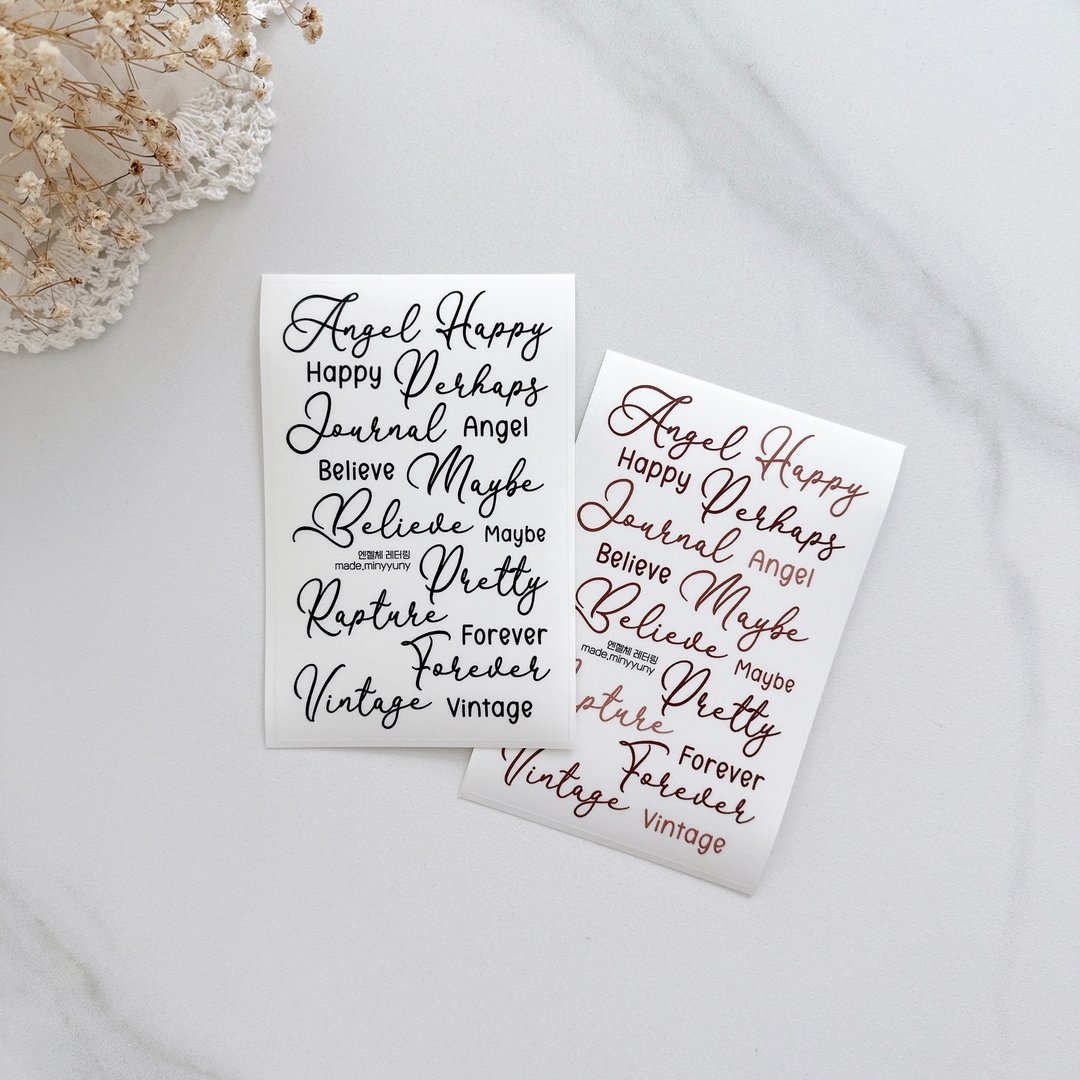 Angel Happy
Happy Perhaps
Journal Angel
Believe Maybe
Believe Maybe
엔젤체 레터링
made,minyyuny
Pretty
Rapture
Forever
Forever
Vintage Vintage
Angel Happy
Happy Perhaps
Journal Angel
Believe Maybe
Believe Maybe
엔젤체 레터링
made,minyyuny
Pretty
pture
Forever
Forever
Vintage Vintage